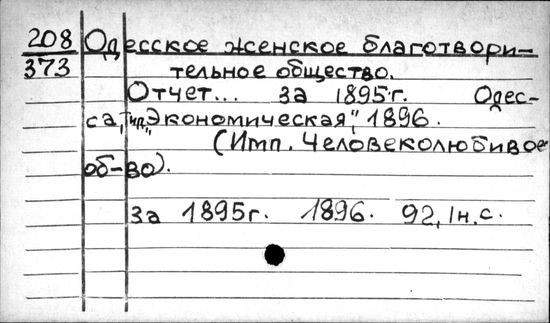 208 Одесское женское благотвори-
373 тельное общество.
Отчет... за 1895г. Одес-
са, тип. "Экономическая", 1896.
(Имп. Человеколюбивое
об-во).
за 1895г. 1896. 92, 1н.с.